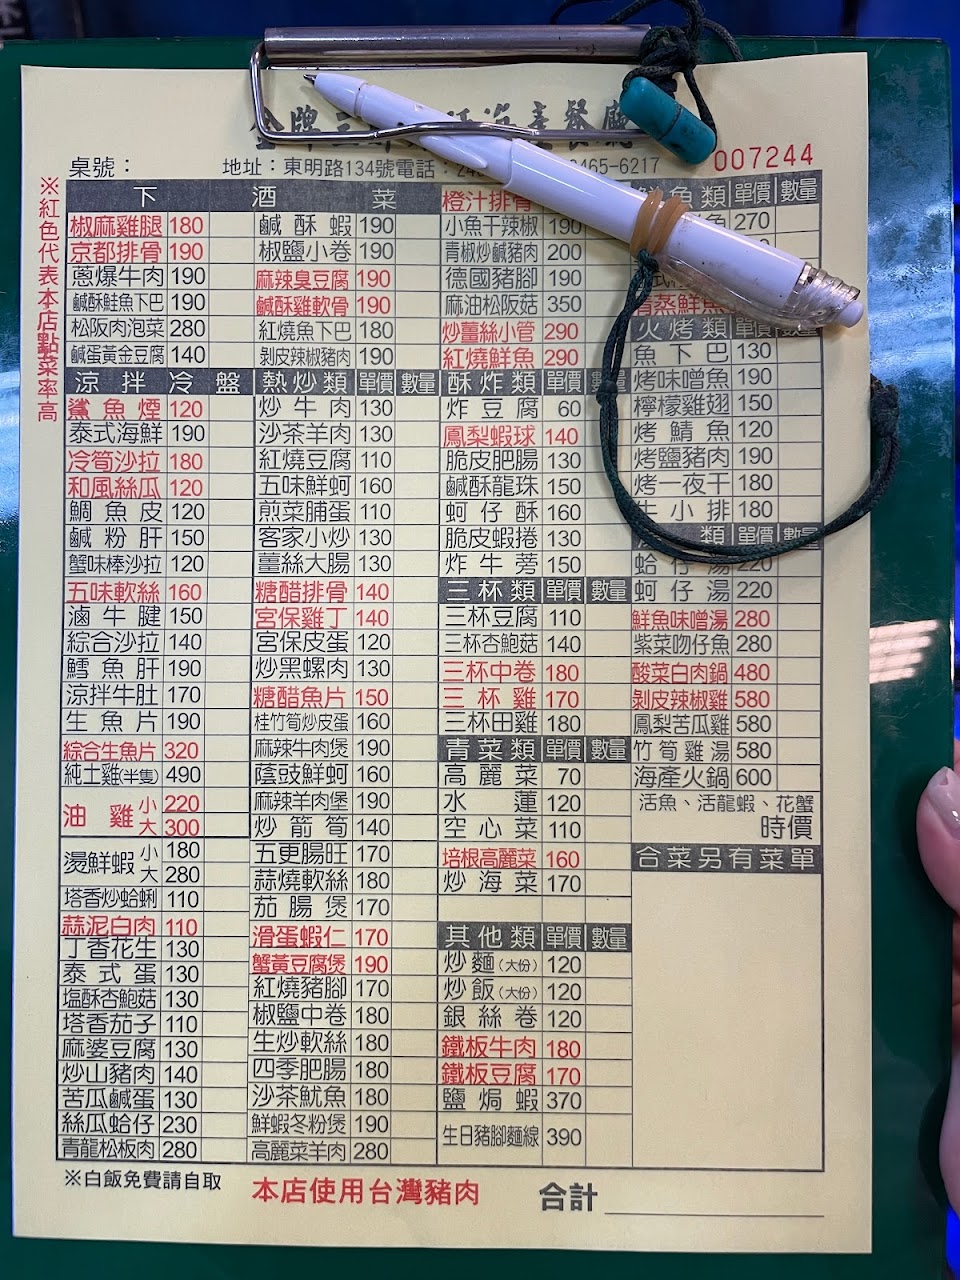 金牌
海產餐廳
桌號：
地址：東明路134號電話：
465-6217
007244
※紅色代表本店點菜率高
下酒菜
椒麻雞腿 180
京都排骨 190
蔥爆牛肉 190
鹹酥鮭魚下巴 190
松阪肉泡菜 280
鹹蛋黃金豆腐 140
涼拌冷盤
鯊魚煙 120
泰式海鮮 190
冷筍沙拉 180
和風絲瓜 120
鯛魚皮 120
鹹粉肝 150
蟹味棒沙拉 120
五味軟絲 160
滷牛腱 150
綜合沙拉 140
鱈魚肝 190
涼拌牛肚 170
生魚片 190
綜合生魚片 320
純土雞(半隻) 490
油雞 小 220
大 300
燙鮮蝦 小 180
大 280
塔香炒蛤蜊 110
蒜泥白肉 110
丁香花生 130
泰式蛋 130
塩酥杏鮑菇 130
塔香茄子 110
麻婆豆腐 130
炒山豬肉 140
苦瓜鹹蛋 130
絲瓜蛤仔 230
青龍松板肉 280
鹹酥蝦 190
椒鹽小卷 190
麻辣臭豆腐 190
鹹酥雞軟骨 190
紅燒魚下巴 180
剝皮辣椒豬肉 190
熱炒類 單價 數量
炒牛肉 130
沙茶羊肉 130
紅燒豆腐 110
五味鮮蚵 160
煎菜脯蛋 110
客家小炒 130
薑絲大腸 130
糖醋排骨 140
宮保雞丁 140
宮保皮蛋 120
炒黑螺肉 130
糖醋魚片 150
桂竹筍炒皮蛋 160
麻辣牛肉煲 190
蔭豉鮮蚵 160
麻辣羊肉堡 190
炒箭筍 140
五更腸旺 170
蒜燒軟絲 180
茄腸煲 170
滑蛋蝦仁 170
蟹黃豆腐煲 190
紅燒豬腳 170
椒鹽中卷 180
生炒軟絲 180
四季肥腸 180
沙茶魷魚 180
鮮蝦冬粉煲 190
高麗菜羊肉 280
橙汁排骨
小魚干辣椒 190
青椒炒鹹豬肉 200
德國豬腳 190
麻油松阪菇 350
炒薑絲小管 290
紅燒鮮魚 290
酥炸類 單價 數量
炸豆腐 60
鳳梨蝦球 140
脆皮肥腸 130
鹹酥龍珠 150
蚵仔酥 160
脆皮蝦捲 130
炸牛蒡 150
三杯類 單價 數量
三杯豆腐 110
三杯杏鮑菇 140
三杯中卷 180
三杯雞 170
三杯田雞 180
青菜類 單價 數量
高麗菜 70
水蓮 120
空心菜 110
培根高麗菜 160
炒海菜 170
其他類 單價 數量
炒麵(大份) 120
炒飯(大份) 120
銀絲卷 120
鐵板牛肉 180
鐵板豆腐 170
鹽焗蝦 370
生日豬腳麵線 390
魚類 單價 數量
270
蒸鮮魚
火烤類 單價 數量
魚下巴 130
烤味噌魚 190
檸檬雞翅 150
烤鯖魚 120
烤鹽豬肉 190
烤一夜干 180
牛小排 180
類 單價 數量
蛤仔湯 220
蚵仔湯 220
鮮魚味噌湯 280
紫菜吻仔魚 280
酸菜白肉鍋 480
剝皮辣椒雞 580
鳳梨苦瓜雞 580
竹筍雞湯 580
海產火鍋 600
活魚、活龍蝦、花蟹
時價
合菜另有菜單
※白飯免費請自取
本店使用台灣豬肉
合計